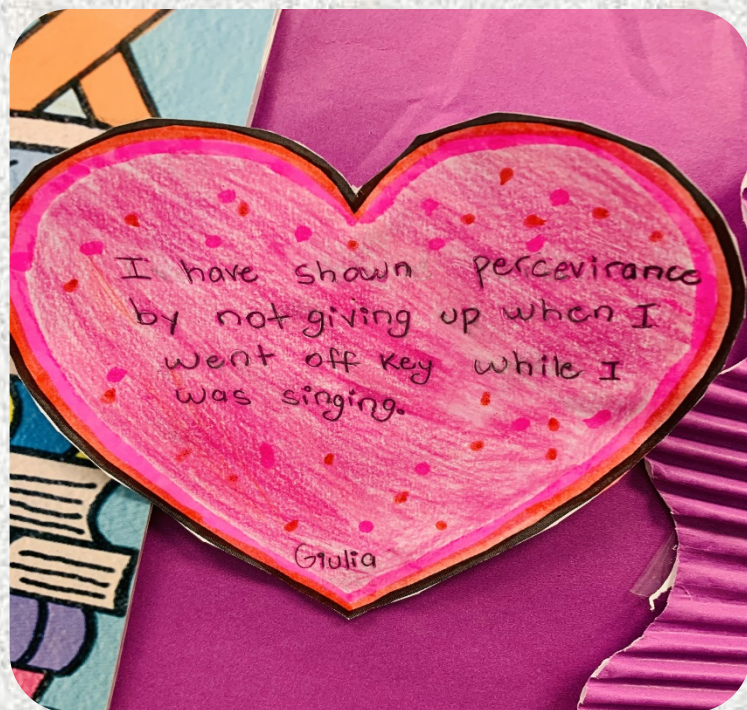 I have shown percevirance
by not giving up when I
went off key while I
was singing.
Giulia